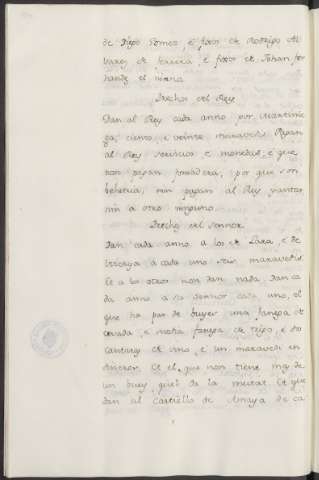 de Diego Gomes, e fijos de Rodrigo Al
varez de Ferrera, e fijos de Johan fer
nandez el
Derechos del Rey
Dan al Rey cada anno por martinie
ga, ciento e veinte maravedis. Pagan
al Rey servicios e monedas, e que
non pagan fonsadera, por que son
behetria, nin pagan al Rey yantar
nin a otro ninguno.
Derechos del sennor
Dan cada anno a los de Lara, e de
Vizcaya a cada uno seis maravedis
e a los otros non dan nada. Dan ca
da anno a su sennor cada uno, el
que ha par de bueyes una fanega de
cevada, e media fanega de trigo, e dos
cantaras de vino, e un maravedi en
dineros. Et el que non tiene mas de
un buey, que de la meitat. Et que
dan al Castiello de Amaya de ca